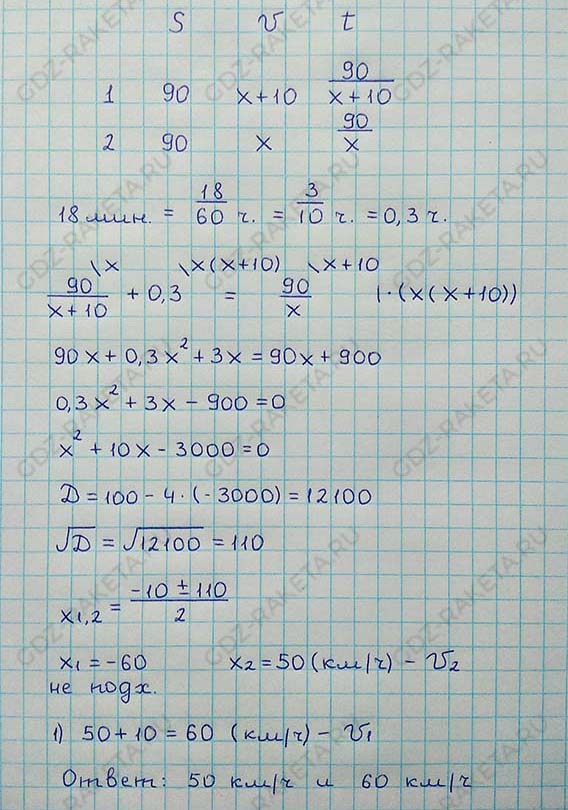 S v t
1 90 x+10 90/(x+10)
2 90 x 90/x
18 мин. = 18/60 ч. = 3/10 ч. = 0,3 ч.
\x \x(x+10) \x+10
90/(x+10) + 0,3 = 90/x |·(x(x+10))
90x + 0,3x² + 3x = 90x + 900
0,3x² + 3x - 900 = 0
x² + 10x - 3000 = 0
D = 100 - 4·(-3000) = 12100
√D = √12100 = 110
x1,2 = (-10 ± 110)/2
x1 = -60 x2 = 50 (км/ч) - v2
не подх.
1) 50 + 10 = 60 (км/ч) - v1
Ответ: 50 км/ч и 60 км/ч
GDZ-RAKETA.RU